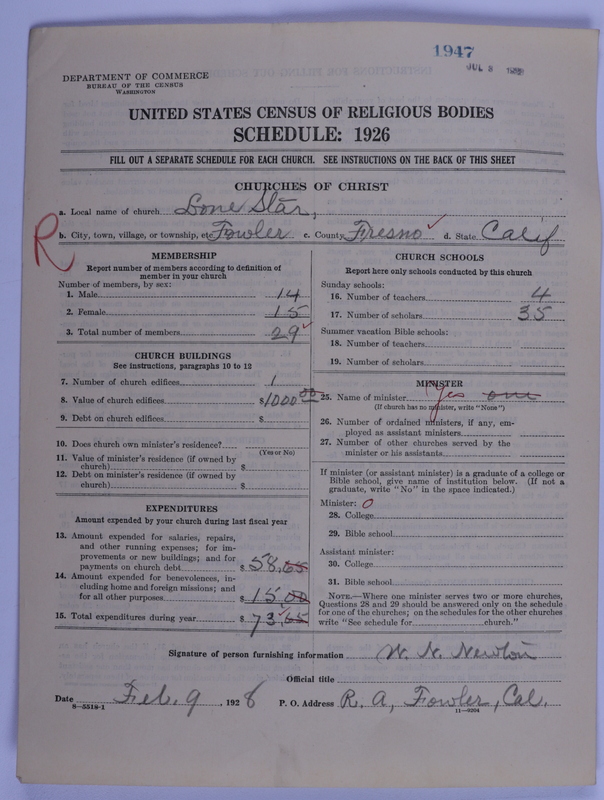 1947
JUL 3
DEPARTMENT OF COMMERCE
BUREAU OF THE CENSUS
WASHINGTON
UNITED STATES CENSUS OF RELIGIOUS BODIES
SCHEDULE: 1926
FILL OUT A SEPARATE SCHEDULE FOR EACH CHURCH. SEE INSTRUCTIONS ON THE BACK OF THIS SHEET
CHURCHES OF CHRIST
a. Local name of church Lone Star,
R
b. City, town, village, or township, etc. Fowler c. County Fresno ✓ d. State Calif
MEMBERSHIP
Report number of members according to definition of
member in your church
Number of members, by sex:
1. Male 14
2. Female 15
3. Total number of members 29 ✓
CHURCH BUILDINGS
See instructions, paragraphs 10 to 12
7. Number of church edifices 1
8. Value of church edifices $1000 00
9. Debt on church edifices $
10. Does church own minister's residence?
(Yes or No)
11. Value of minister's residence (if owned by
church) $
12. Debt on minister's residence (if owned by
church) $
EXPENDITURES
Amount expended by your church during last fiscal year
13. Amount expended for salaries, repairs,
and other running expenses; for im-
provements or new buildings; and for
payments on church debt $ 58.65
14. Amount expended for benevolences, in-
cluding home and foreign missions; and
for all other purposes $ 15 00
15. Total expenditures during year $ 73.65
CHURCH SCHOOLS
Report here only schools conducted by this church
Sunday schools:
16. Number of teachers 4
17. Number of scholars 35
Summer vacation Bible schools:
18. Number of teachers
19. Number of scholars
MINISTER
25. Name of minister Yes one
(If church has no minister, write "None")
26. Number of ordained ministers, if any, em-
ployed as assistant ministers
27. Number of other churches served by the
minister or his assistants
If minister (or assistant minister) is a graduate of a college or
Bible school, give name of institution below. (If not a
graduate, write "No" in the space indicated.)
Minister: 0
28. College
29. Bible school
Assistant minister:
30. College
31. Bible school
NOTE.—Where one minister serves two or more churches,
Questions 28 and 29 should be answered only on the schedule
for one of the churches; on the schedules for the other churches
write "See schedule for church."
Signature of person furnishing information W. N. Newton
Official title
Date Feb. 9, 1928 P. O. Address R. A, Fowler, Cal.
8—5518-1
11—9204